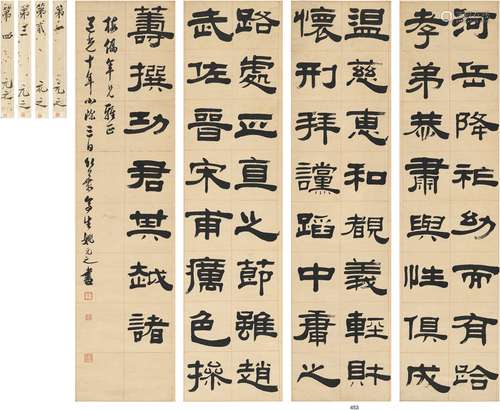 河岳降祉幼而有
孝弟恭肅與性俱成
温慈惠和覩義輕財
懷刑拜讜蹈中庸之
路處正直之節雖趙
武佐晉宋甫厲色操
籌撰功君其越諸
年兄雅正
道光十年小陽三日竹葉亭生姚元之書
元之
第貳 元之
第三 元之
第四 元之
453